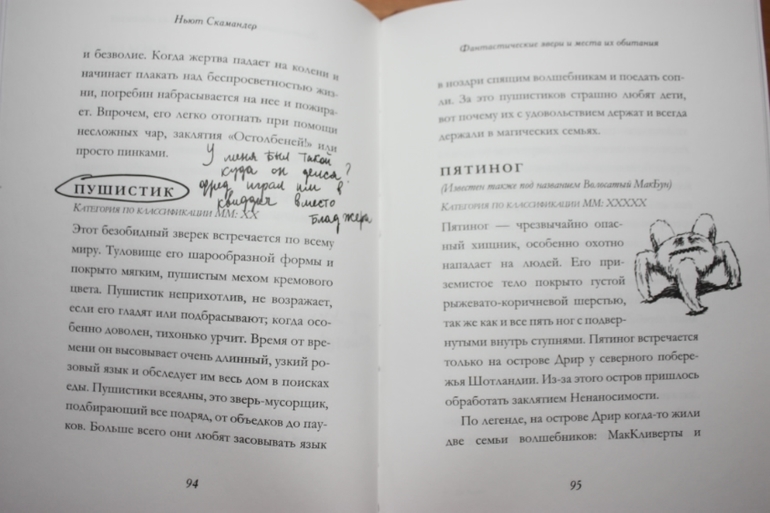 Ньют Скамандер
и безволие. Когда жертва падает на колени и
начинает плакать над беспросветностью жиз-
ни, погребин набрасывается на нее и пожира-
ет. Впрочем, его легко отогнать при помощи
несложных чар, заклятия «Остолбеней!» или
просто пинками.
У меня был такой
куда он делся?
Фред играл им в
квиддич вместо
Бладжера
ПУШИСТИК
Категория по классификации ММ: XX
Этот безобидный зверек встречается по всему
миру. Туловище его шарообразной формы и
покрыто мягким, пушистым мехом кремового
цвета. Пушистик неприхотлив, не возражает,
если его гладят или подбрасывают; когда осо-
бенно доволен, тихонько урчит. Время от вре-
мени он высовывает очень длинный, узкий ро-
зовый язык и обследует им весь дом в поисках
еды. Пушистики всеядны, это зверь-мусорщик,
подбирающий все подряд, от объедков до пау-
ков. Больше всего они любят засовывать язык
94
Фантастические звери и места их обитания
в ноздри спящим волшебникам и поедать соп-
ли. За это пушистиков страшно любят дети,
вот почему их с удовольствием держат и всегда
держали в магических семьях.
ПЯТИНОГ
(Известен также под названием Волосатый МакБун)
Категория по классификации ММ: XXXXX
Пятиног — чрезвычайно опас-
ный хищник, особенно охотно
нападает на людей. Его при-
земистое тело покрыто густой
рыжевато-коричневой шерстью,
так же как и все пять ног с подвер-
нутыми внутрь ступнями. Пятиног встречается
только на острове Дрир у северного побере-
жья Шотландии. Из-за этого остров пришлось
обработать заклятием Ненаносимости.
По легенде, на острове Дрир когда-то жили
две семьи волшебников: МакКливерты и
95